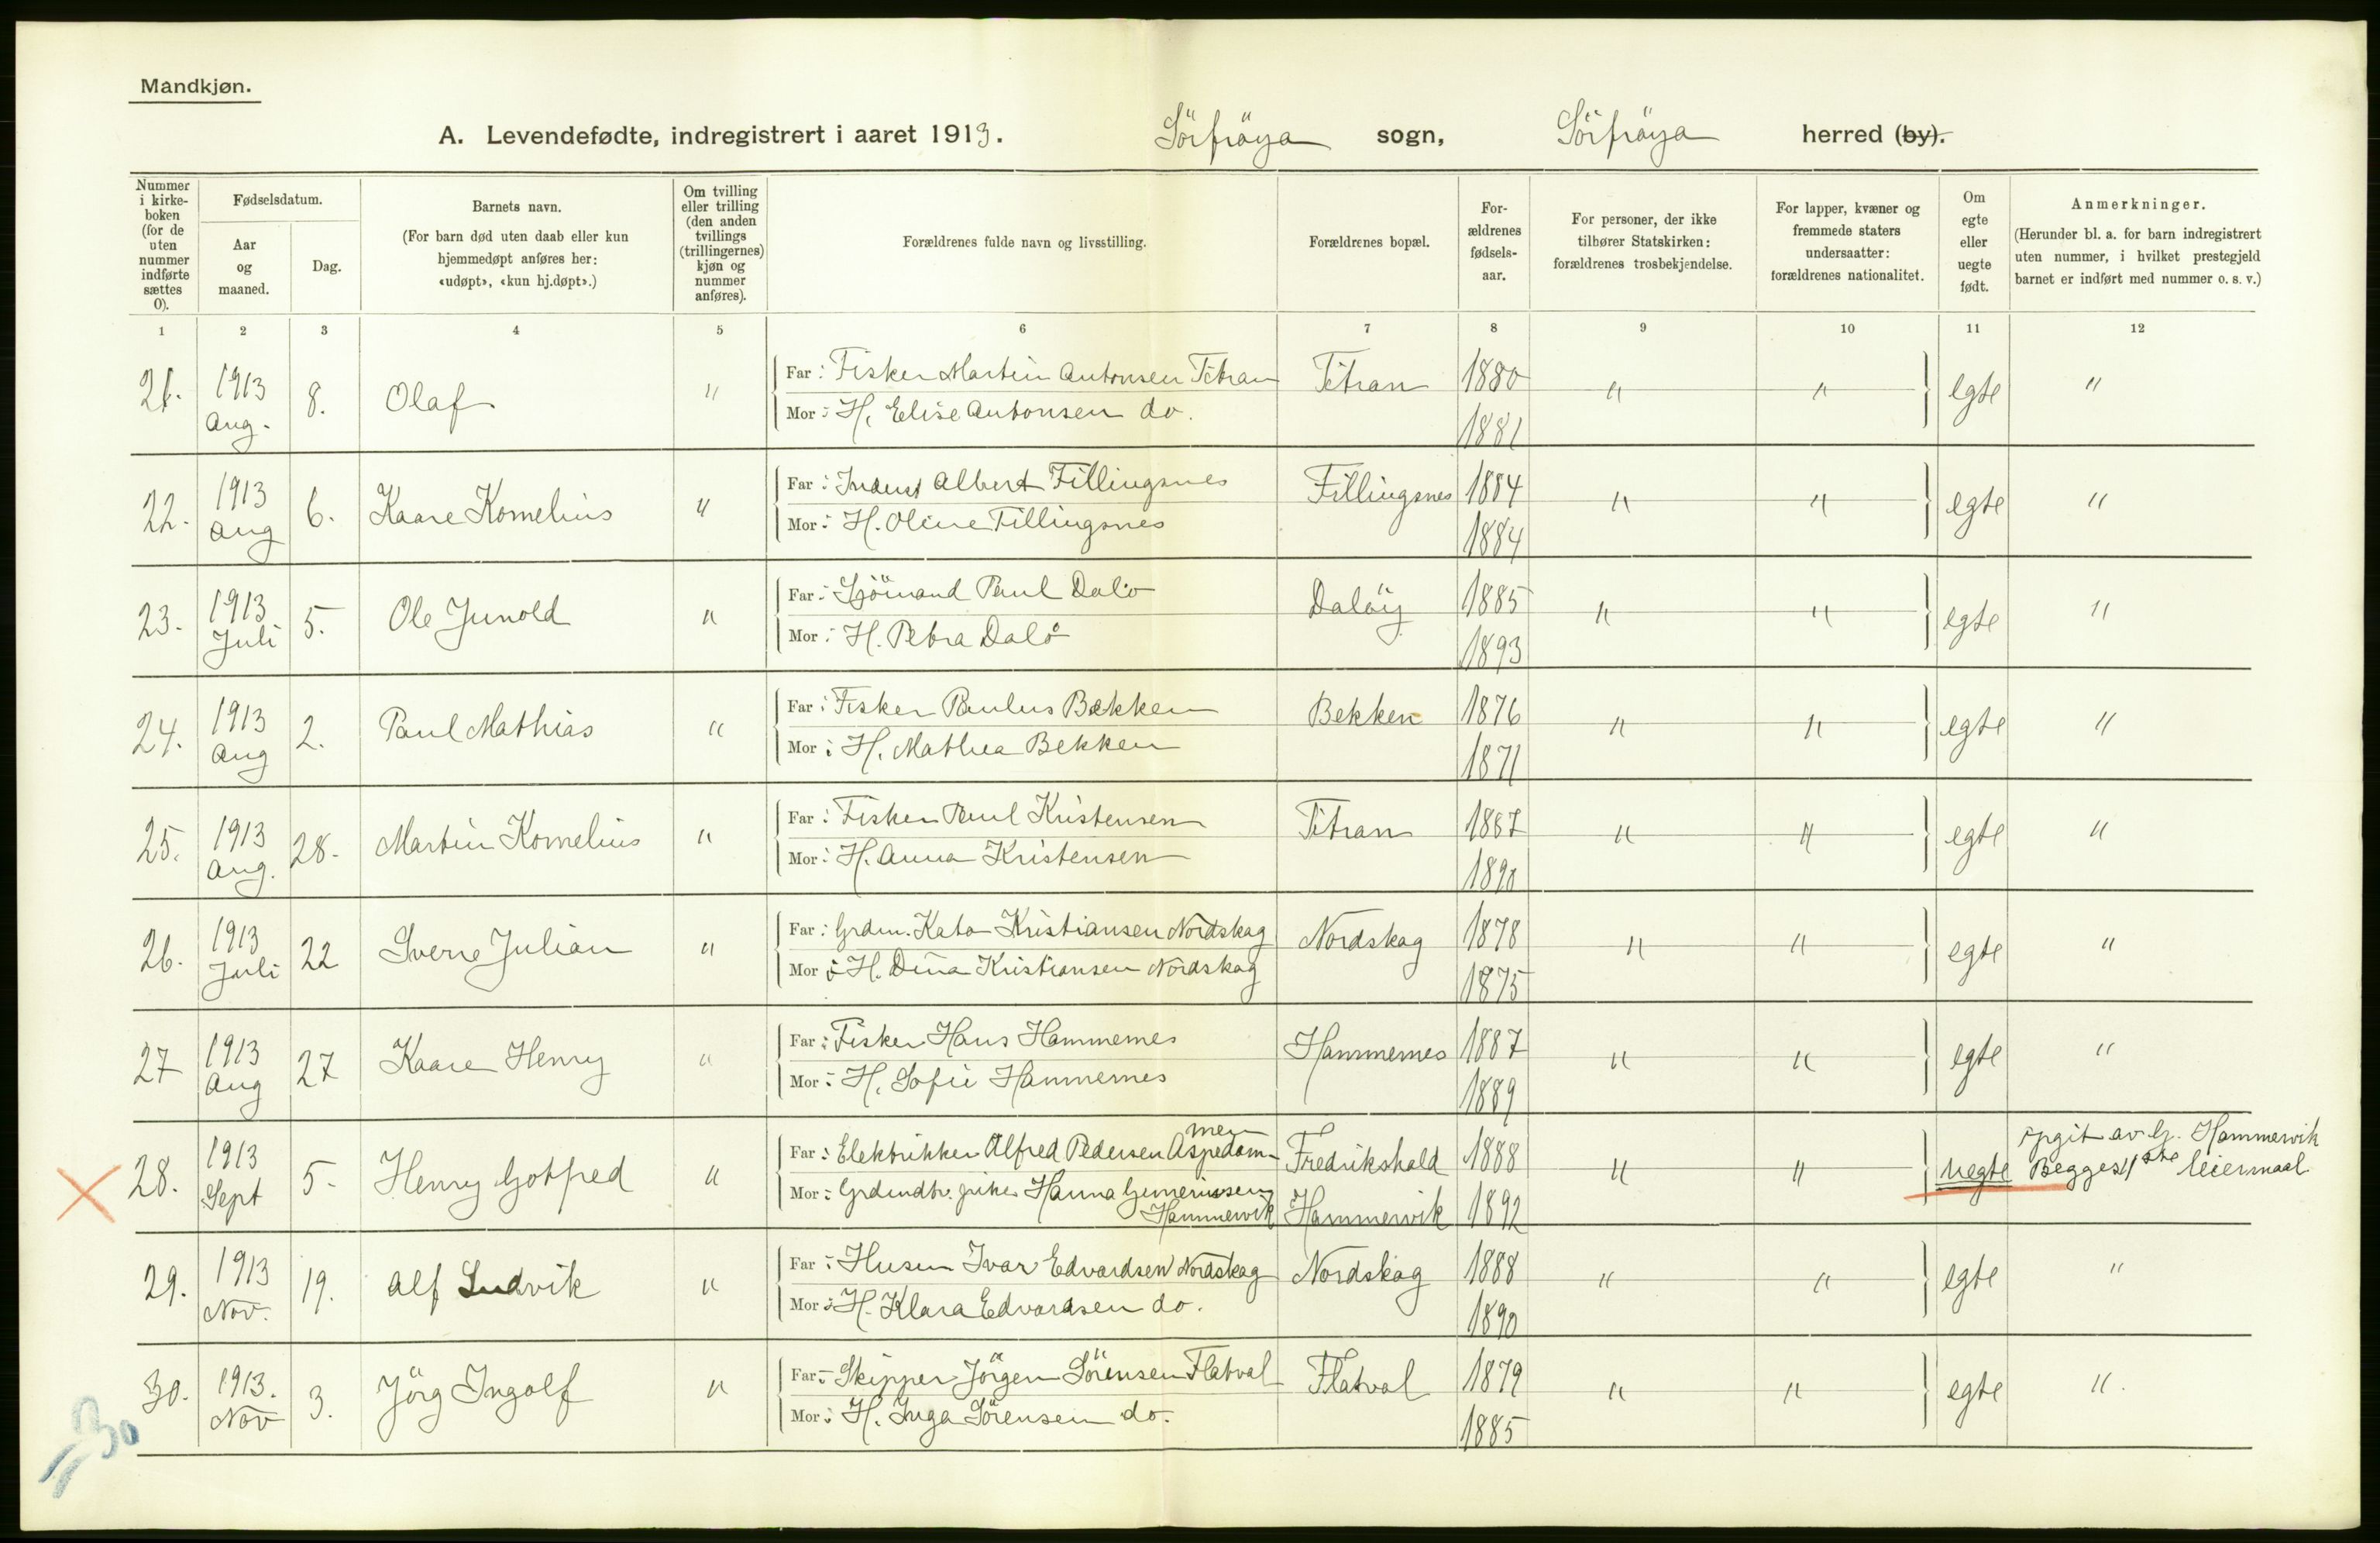 Mandkjøn.
A. Levendefødte, indregistrert i aaret 1913. Sörfröya sogn, Sörfröya herred (by).
Nummer i kirkeboken (for de uten nummer indførte sættes 0).
Fødselsdatum.
Aar og maaned.
Dag.
Barnets navn.
(For barn død uten daab eller kun hjemmedøpt anføres her: «udøpt», «kun hj.døpt».)
Om tvilling eller trilling (den anden tvillings (trillingernes) kjøn og nummer anføres).
Forældrenes fulde navn og livsstilling.
Forældrenes bopæl.
Forældrenes fødselsaar.
For personer, der ikke tilhører Statskirken: forældrenes trosbekjendelse.
For lapper, kvæner og fremmede staters undersaatter: forældrenes nationalitet.
Om egte eller uegte født.
Anmerkninger.
(Herunder bl. a. for barn indregistrert uten nummer, i hvilket prestegjeld barnet er indført med nummer o. s. v.)
1 2 3 4 5 6 7 8 9 10 11 12
21. 1913 Aug. 8. Olaf " Far: Fisker Martin Antonsen Titran Titran 1880 " " egte "
Mor: H. Elise Antonsen do. 1881
22. 1913 Aug 6. Kaare Kornelius " Far: Albert Fillingsnes Fillingsnes 1884 " " egte "
Mor: H. Oline Fillingsnes 1884
23. 1913 Juli 5. Ole Junold " Far: Sjömand Paul Dalö Dalöy 1885 " " egte "
Mor: H. Petra Dalö 1893
24. 1913 Aug 2. Paul Mathias " Far: Fisker Paulus Bekken Bekken 1876 " " egte "
Mor: H. Mathea Bekken 1871
25. 1913 Aug. 28. Martin Kornelius " Far: Fisker Paul Kristensen Titran 1887 " " egte "
Mor: H. Anna Kristensen 1890
26. 1913 Juli 22 Sverre Julian " Far: Grdm. Kato Kristiansen Nordskag Nordskag 1878 " " egte "
Mor: H. Dina Kristiansen Nordskag 1875
27 1913 Aug 27 Kaare Henry " Far: Fisker Hans Hammernes Hammernes 1887 " " egte "
Mor: H. Sofie Hammernes 1889
28. 1913 Sept 5. Henry Gotfred " Far: Elektrikker Alfred Pedersen Aspedammen Fredrikshald 1888 " " uegte opgit av G. Hammervik
Mor: Hanna Hammervik Hammervik 1892 Begges 1ste leiermaal
29. 1913 Nov. 19. Alf Ludvik " Far: Husm Ivar Edvardsen Nordskag Nordskag 1888 " " egte "
Mor: H. Klara Edvardsen do. 1890
30. 1913. Nov 3. Jörg Ingolf " Far: Skipper Jörgen Sörensen Flatval Flatval 1879 " " egte ".
Mor: H. Inga Sörensen do. 1885
30